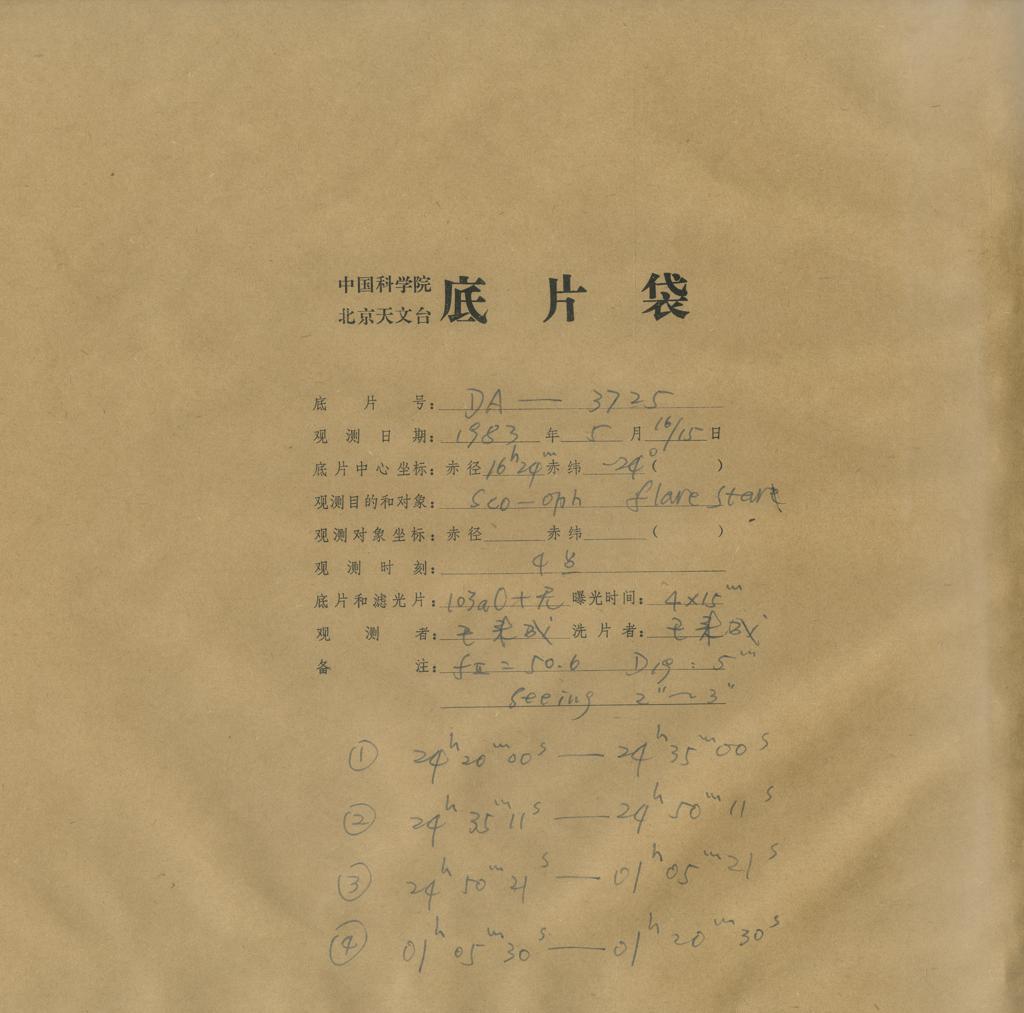 中国科学院
北京天文台 底片袋
底片号: DA — 3725
观测日期: 1983 年 5 月 16/15 日
底片中心坐标: 赤径 16ʰ24ᵐ 赤纬 -24° ( )
观测目的和对象: Sco-oph flare star
观测对象坐标: 赤径 赤纬 ( )
观测时刻: 4
底片和滤光片: 103aO+无 曝光时间: 4×15ᵐ
观测者: 洗片者:
备注: fⅡ = 50.6 Dig: 5ᵐ
Seeing 2"~3"
① 24ʰ20ᵐ00ˢ — 24ʰ35ᵐ00ˢ
② 24ʰ35ᵐ11ˢ — 24ʰ50ᵐ11ˢ
③ 24ʰ50ᵐ21ˢ — 01ʰ05ᵐ21ˢ
④ 01ʰ05ᵐ30ˢ — 01ʰ20ᵐ30ˢ